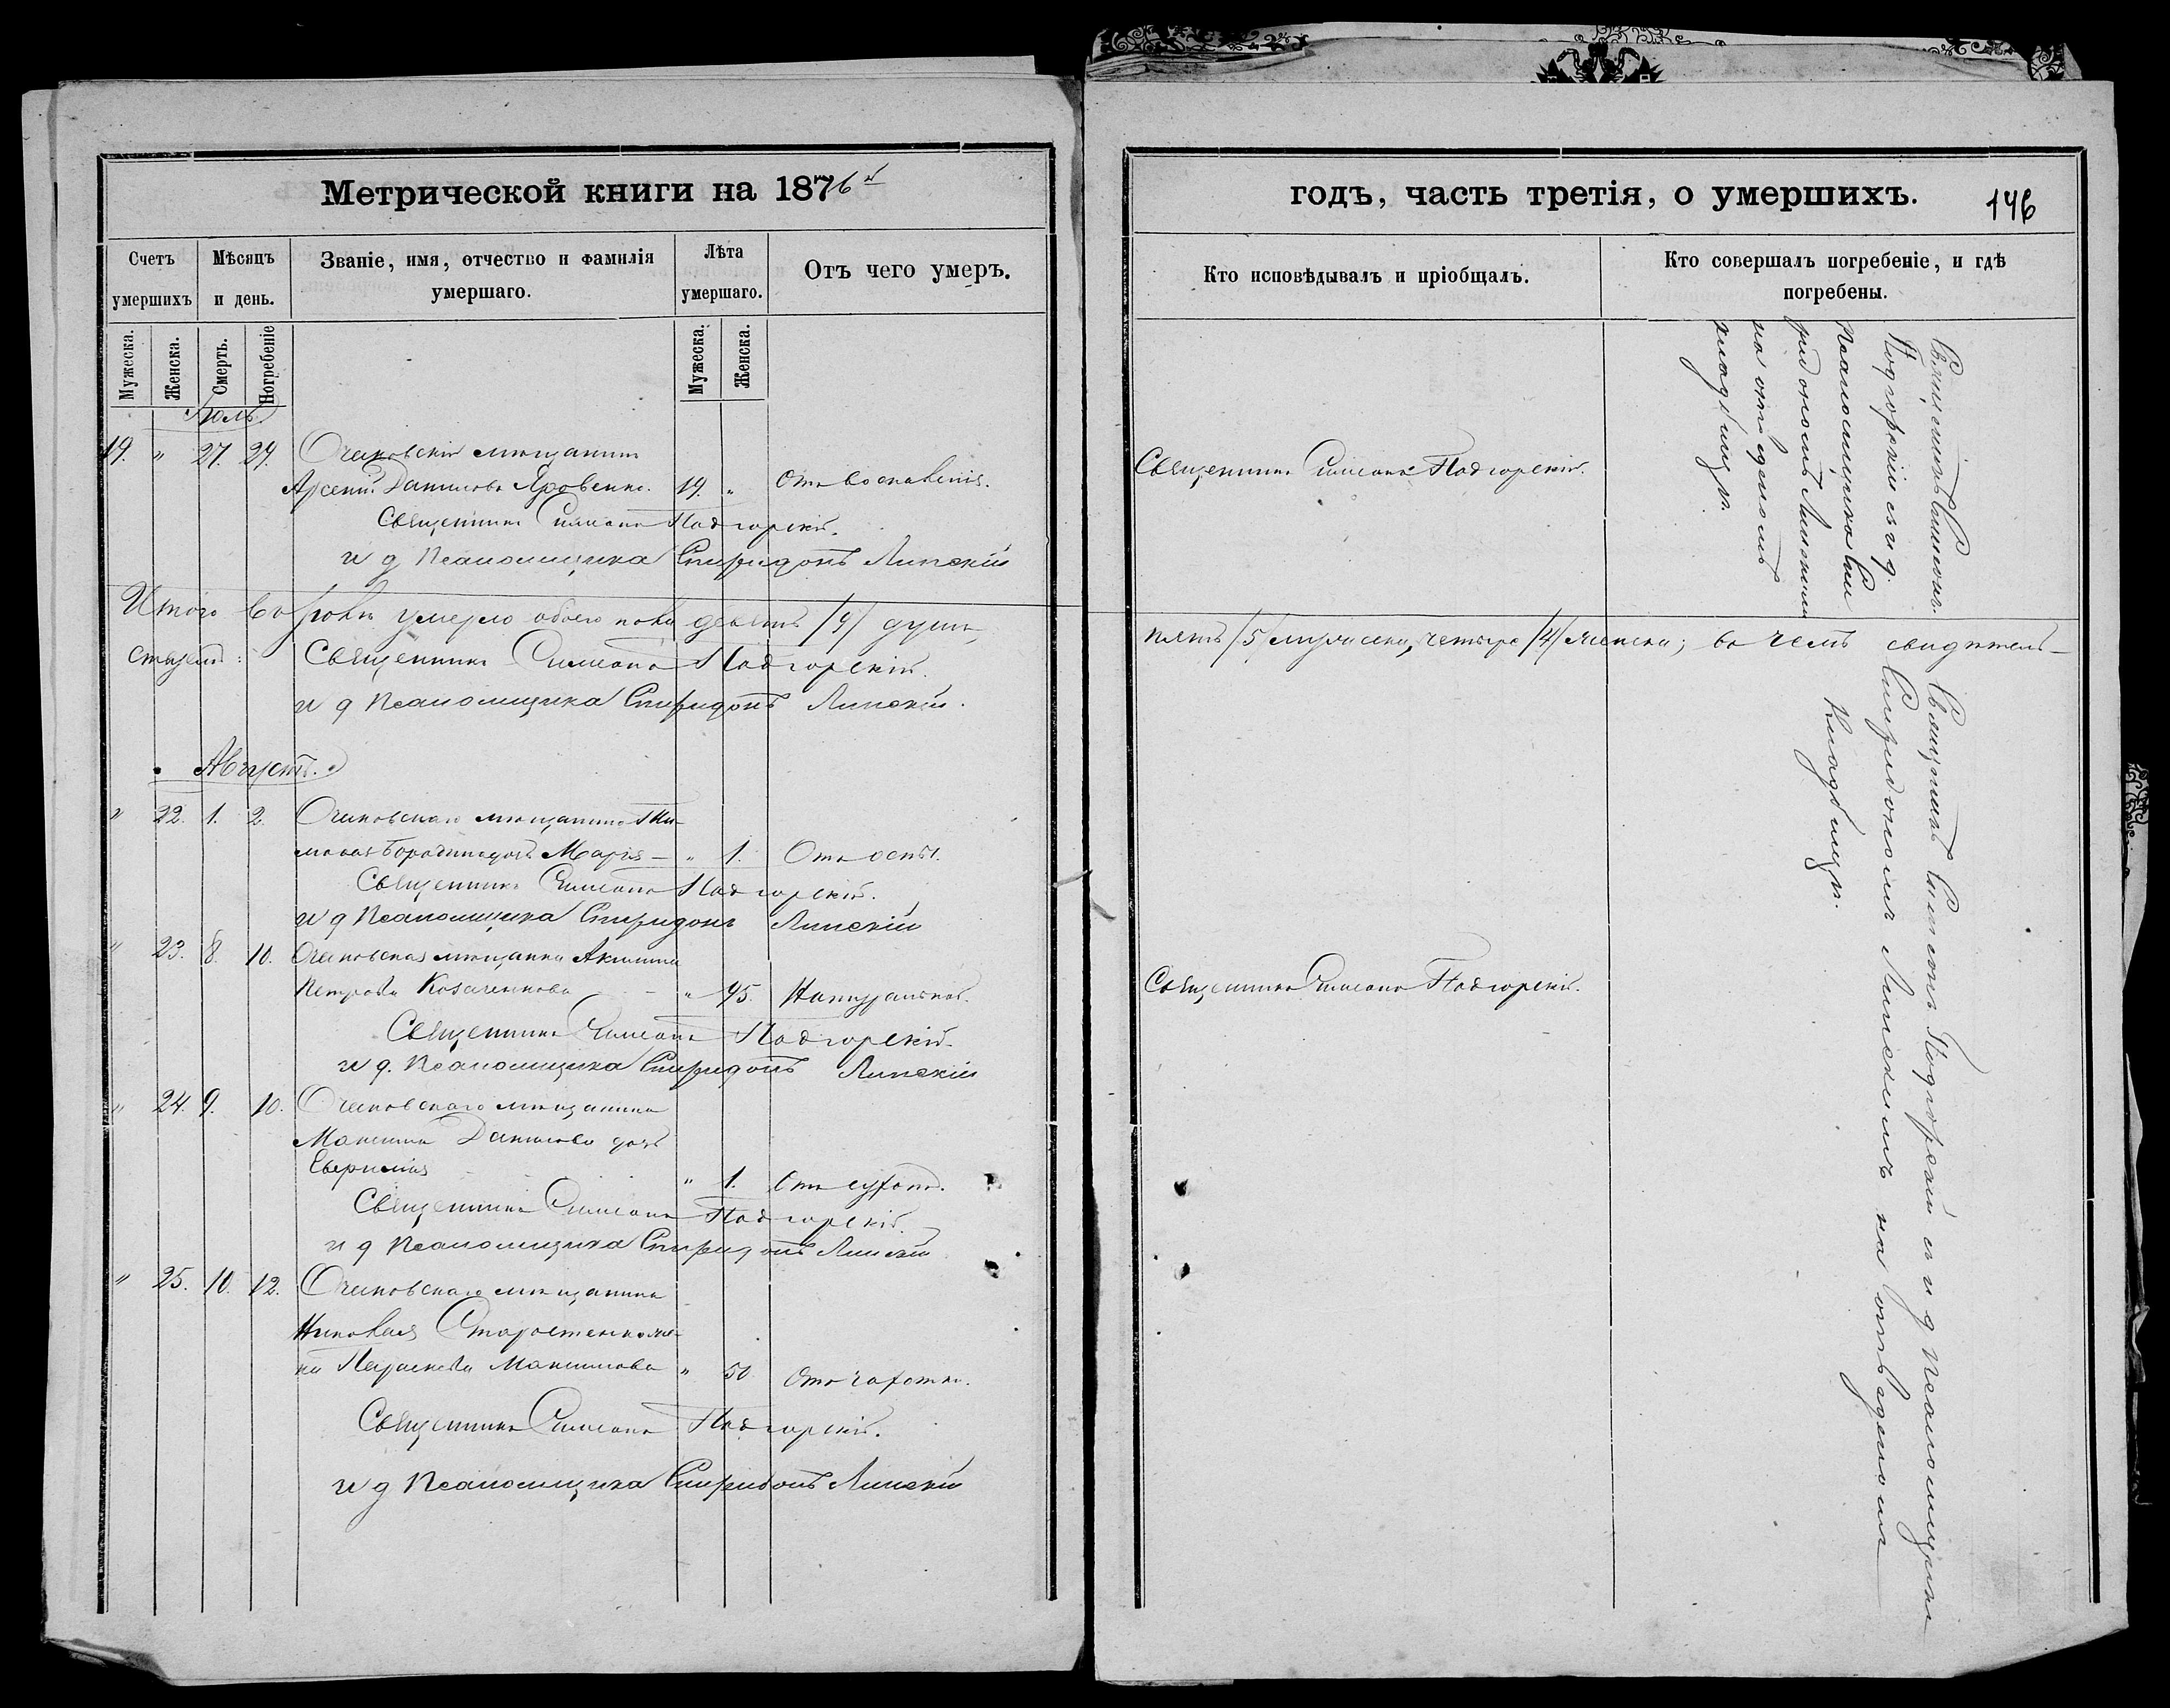 Метрической книги на 1876й
Счетъ умершихъ
Мѣсяцъ и день.
Званіе, имя, отчество и фамилія умершаго.
Лѣта умершаго.
Отъ чего умеръ.
Мужеска.
Женска.
Смерть.
Погребеніе
Мужеска.
Женска.
Іюль.
19. " 27. 29. Очаковскій мѣщанинъ
Арсеній Даниловъ Яровенко. 19. " Отъ воспаленія.
Священникъ Симеонъ Подгорскій.
и д Псаломщика Спиридонъ Липскій
Итого въ Іюлѣ умерло обоего пола девять /9/ душъ,
ствуемъ: Священникъ Симеонъ Подгорскій.
и д Псаломщика Спиридонъ Липскій.
Августъ.
" 22. 1. 2. Очаковскаго мѣщанина
дочь Марія — " 1. Отъ оспы.
Священникъ Симеонъ Подгорскій.
и д Псаломщика Спиридонъ Липскій
" 23. 8. 10. Очаковская мѣщанка Акилина
Петрова Козаченкова - - " 45. Натуральной.
Священникъ Симеонъ Подгорскій.
и д. Псаломщика Спиридонъ Липскій
" 24. 9. 10. Очаковскаго мѣщанина
Максима Данилова дочь
" 1. Отъ сухот.
Священникъ Симеонъ Подгорскій.
и д Псаломщика Спиридонъ Липскій
" 25. 10. 12. Очаковскаго мѣщанина
Николая Старостенко же-
на Параскева Максимова " 50 Отъ чахотки.
Священникъ Симеонъ Подгорскій.
и д Псаломщика Спиридонъ Липскій
годъ, часть третія, о умершихъ.
146
Кто исповѣдывалъ и пріобщалъ.
Кто совершалъ погребеніе, и гдѣ погребены.
Священникъ Симеонъ Подгорскій.
Священникъ Симеонъ
Подгорскій съ и д.
Псаломщика Спи
ридономъ Липскимъ
на отведенномъ
кладбищѣ.
пять /5/ мужеска, четыре /4/ женска; въ чемъ свидѣтель-
Священникъ Симеонъ Подгорскій.
Священникъ Симеонъ Подгорскій съ и д Псаломщика
Спиридономъ Липскимъ на отведенномъ
Кладбищѣ.